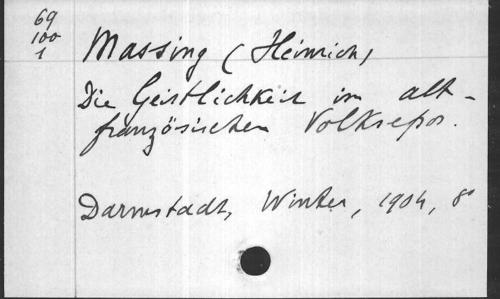 69
100
1
Massing (Heinrich)
Die Geistlichkeit im alt-
französischen Volksepos.
Darmstadt, Winter, 1904, 8°